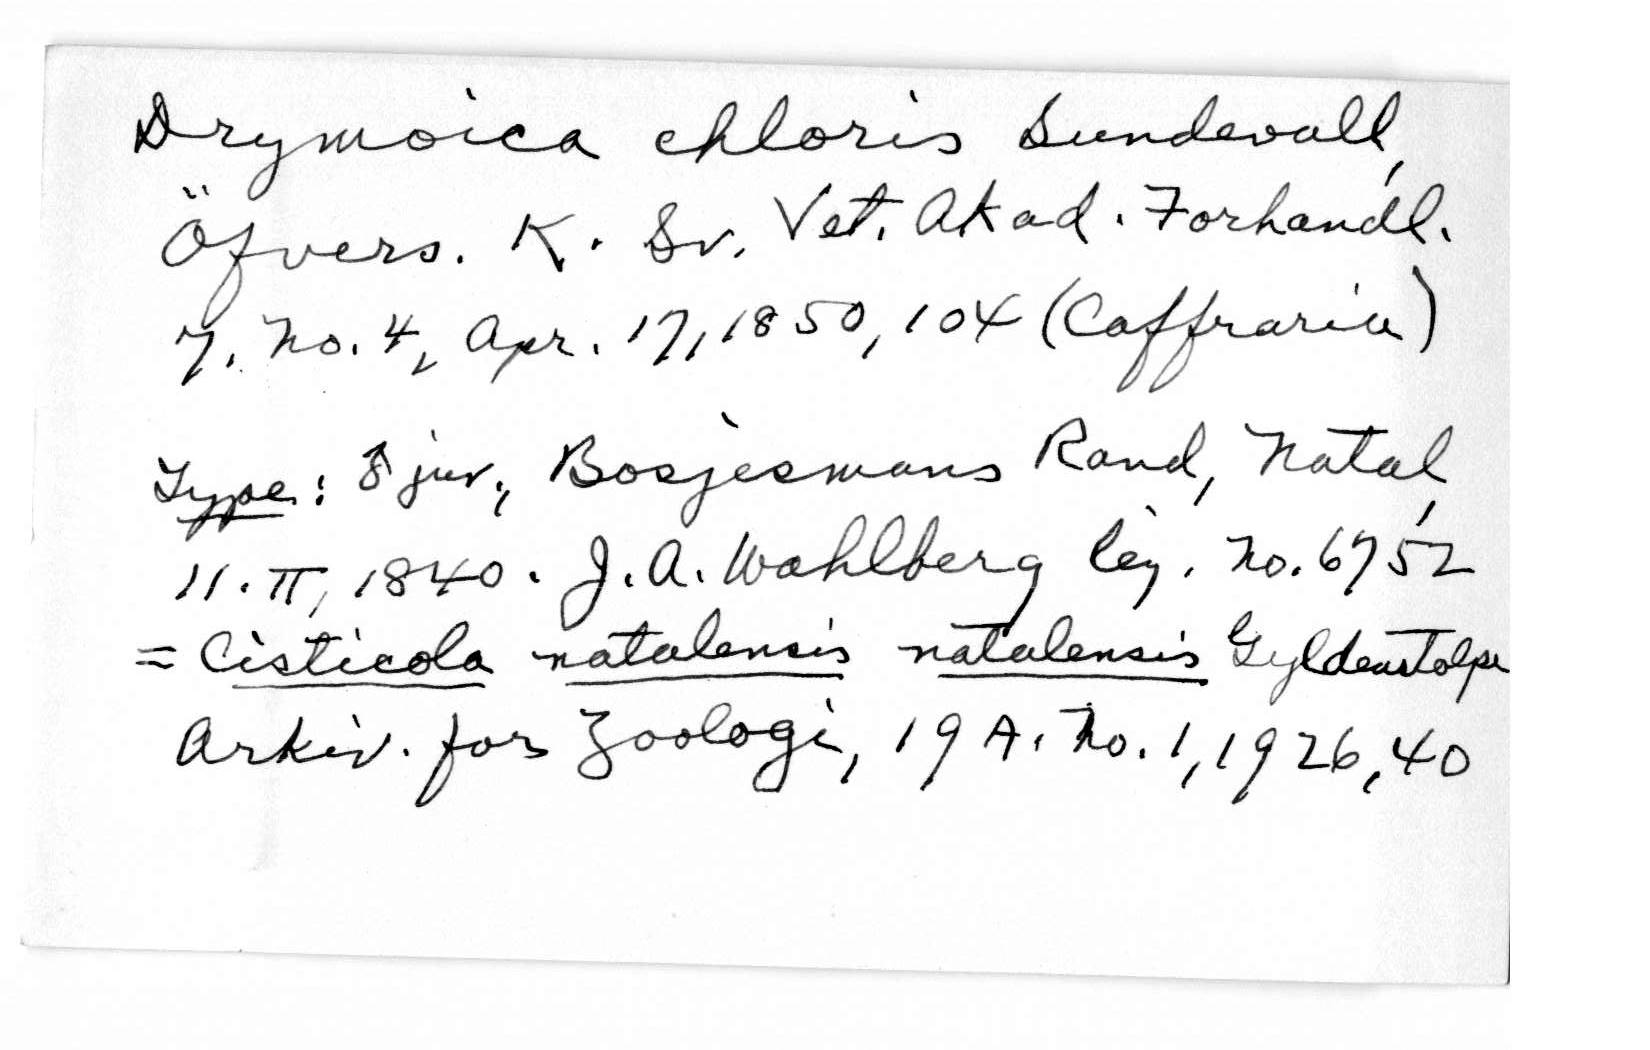 Drymoica chloris Sundevall,
Öfvers. K. Sv. Vet. Akad. Forhandl.
7, No. 4, Apr. 17, 1850, 104 (Caffraria)
Type: ♂ juv., Bosjesmans Rand, Natal,
11.II, 1840. J.A. Wahlberg leg. No. 6752
= Cisticola natalensis natalensis Gyldenstolpe
Arkiv. for Zoologi, 19A. No. 1, 1926, 40